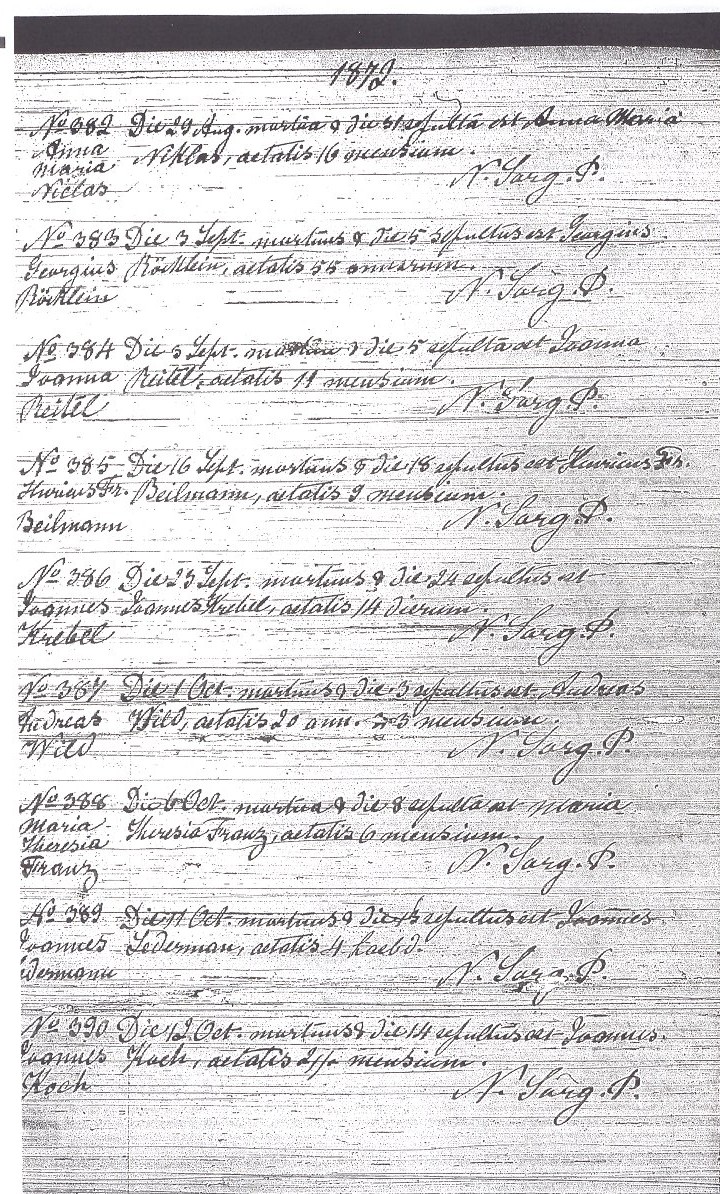 1872.
No 382 Die 29 Aug. mortua & die 31 sepulta est Anna Maria
Anna Niklas, aetatis 16 mensium.
Maria N. Sorg. P.
Niclas
No 383 Die 3 Sept. mortuus & die 5 sepultus est Georgius
Georgius Röcklein, aetatis 55 annorum.
Röcklein N. Sorg. P.
No 384 Die 3 Sept. mortua & die 5 sepulta est Joanna
Joanna Reitel, aetatis 11 mensium.
Reitel N. Sorg. P.
No 385 Die 16 Sept. mortuus & die 18 sepultus est Henricus Fr.
Henricus Fr. Beilmann, aetatis 9 mensium.
Beilmann N. Sorg. P.
No 386 Die 23 Sept. mortuus & die 24 sepultus est
Joannes Joannes Krebel, aetatis 14 dierum.
Krebel N. Sorg. P.
No 387 Die 1 Oct. mortuus & die 3 sepultus est Andreas
Andreas Wild, aetatis 20 ann. 3 mensium.
Wild N. Sorg. P.
No 388 Die 6 Oct. mortua & die 8 sepulta est Maria
Maria Theresia Franz, aetatis 6 mensium.
Theresia N. Sorg. P.
Franz
No 389 Die 11 Oct. mortuus & die sepultus est Joannes
Joannes Lederman, aetatis 4 hebd.
edermann N. Sorg. P.
No 390 Die 12 Oct. mortuus & die 14 sepultus est Joannes
Joannes Koch, aetatis mensium.
Koch N. Sorg. P.